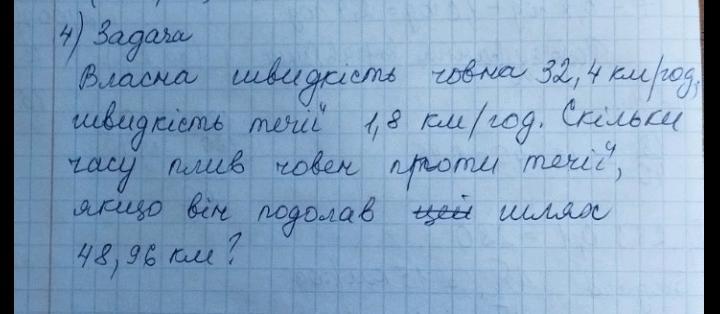 4) Задача
Власна швидкість човна 32,4 км/год,
швидкість течії 1,8 км/год. Скільки
часу плив човен проти течії,
якщо він подолав цей шлях
48,96 км?